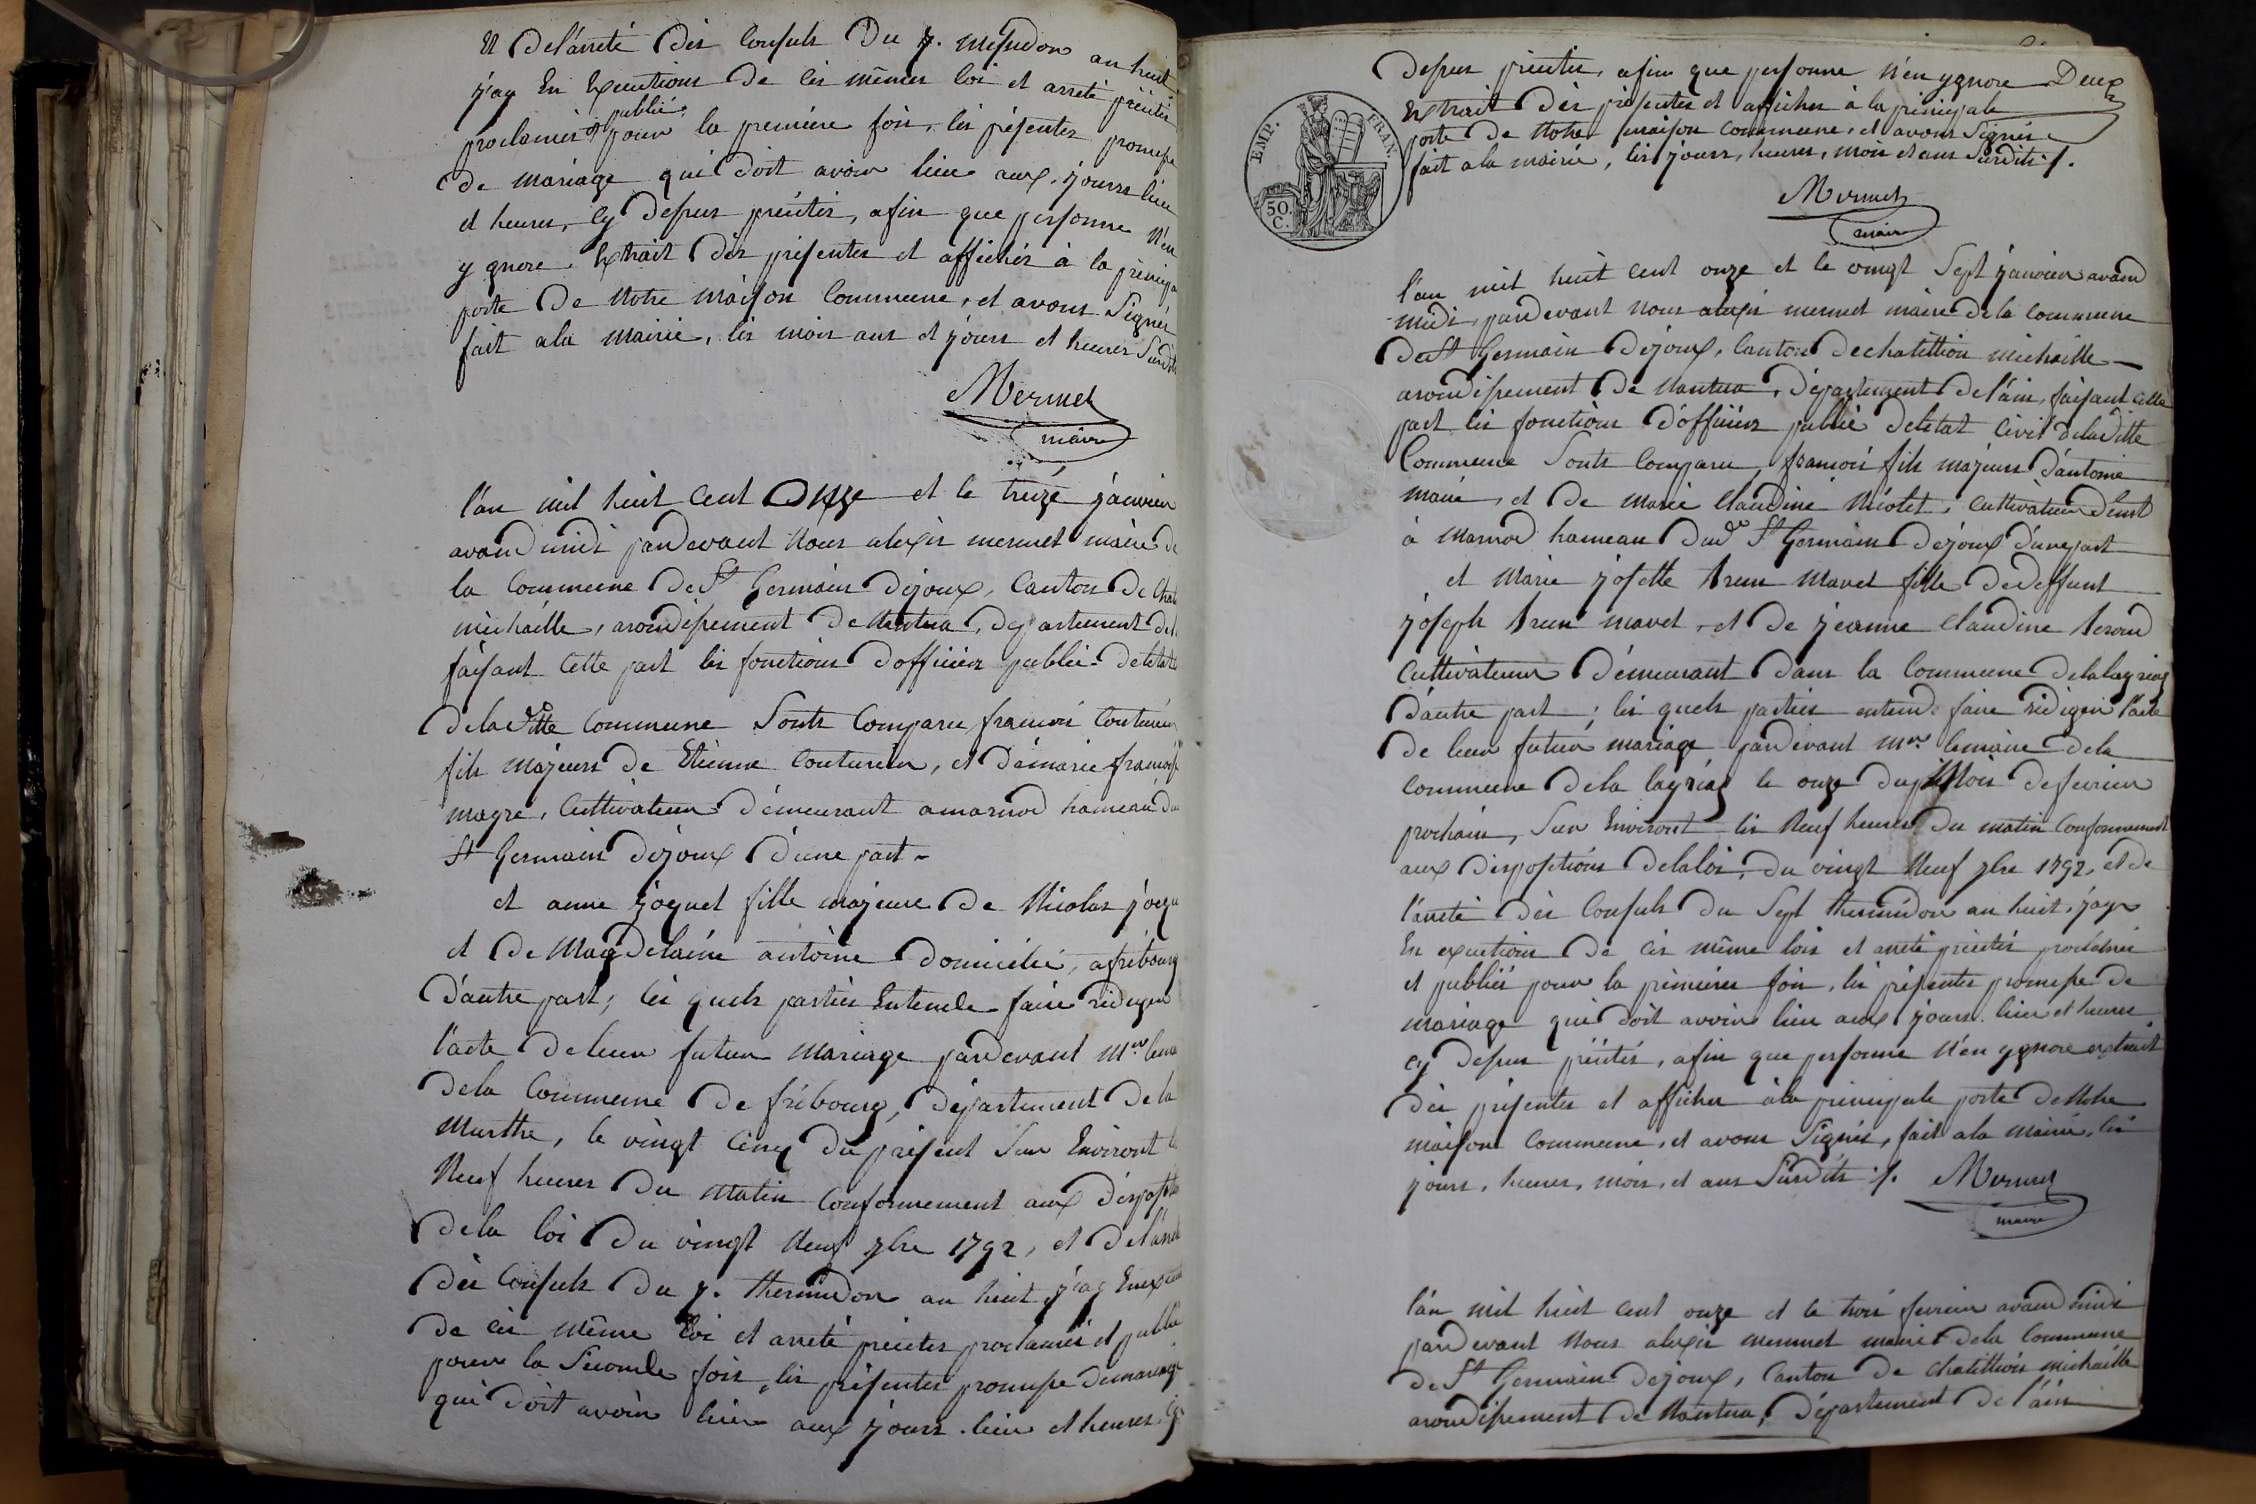 Et De l'arreté des Consuls Du 7. messidor an huit
j'ay En Execution de ces mêmes loi et arreté précités
publié
proclamés et pour la première fois, les présentes promesse
de mariage qui doit avoir lieu aux jours lieu
et heures, cy dessus précités, afin que personne n'en
ygnore Extrait des présentes et affichés à la principa
porte De Notre maison Commune, et avons Signés
fait ala Mairie, les mois ans et jours et heures Susdits
Mermet
maire
l'an mil huit Cent Onze et le treize janvier
avand midi pardevant Nous alexis mermet maire de
la Commune De St Germain Dejoux, Canton de Chati
michaille, arondissement de Nantua, departement del
faisant Cette part les fonctions d'officier public de letat
De la ditte Commune Sonts Comparu francois Couturier
fils majeurs de Etienne Couturier, et De marie françois
magre, Cultivateur demeurant a marnod hameau du
St Germain Dejoux D'une part -
et anne joquet fille majeure de Nicolas joqu
et De Magdelaine antoine Domicilié, a fribourg
D'autre part; les quels parties Entende faire rediger
l'acte De leur futur Mariage pardevant Mr lema
De la Commune De fribourg, département De la
Murthe, le vingt Cinq du présent Sur Environt les
Neuf heures Du Matin Conformement aux dispositio
De la loi Du vingt Neuf 7bre 1792, et De l'arreté
Des Consuls Du 7. thermidor an huit j'ay En execu
De ces même loi et arreté précités proclamés et publié
pour la Seconde fois, les présentes promesse De mariage
qui doit avoir lieu aux jours. lieu et heures Cy
Dessus précités, afin que personne N'en ygnore Deux
Extrait Des présentes et affiches à la principale
porte De Notre maison Commune, et avons Signés
fait ala mairie, les jours, heures, mois et ans Susdits ./.
EMP. FRAN.
50.
C.
Mermet
maire
l'an mil huit Cent onze et le vingt Sept janvier avand
midi, pardevant Nous alexis mermet maire de la Commune
De St Germain Dejoux, Canton de chatillion michaille
arondissement De Nantua, Departement De l'ain, faisant Cette
part les fonctions d'officier publié de letat Civil de la Ditte
Commune Sonts Comparu, francois fils majeurs D'antoine
et De Marie Claudine Nicolet, Cultivateur Demt
à Marnod hameau Dud St Germain Dejoux d'une part
et Marie josette Brun Mavet fille De deffunt
joseph Brun mavet, et De jeanne Claudine
Cultivateur Demeurant Dans la Commune De
D'autre part; les quels parties entende faire rediger l'acte
De leur futur mariage pardevant Mr le maire de la
Commune De la le onze du Mois de fevrier
prochain, Sur Environt les Neuf heures Du matin Conformement
aux Dispositions de la loi, Du vingt Neuf 7bre 1792, et De
l'arreté Des Consuls Du Sept thermidor an huit, j'ay
En execution De Ces même lois et arreté précités proclamés
et publiés pour la première fois, les présentes promesse De
mariage qui doit avoir lieu aux jours. lieu et heures
cy dessus précités, afin que personne N'en ygnore extrait
Des présentes et affiches à la principale porte De Notre
maison Commune, et avons Signés, fait ala mairie, les
jours, heures, mois, et ans Susdits ./. Mermet
maire
l'an mil huit Cent onze et le trois fevrier avand midi
pardevant Nous alexis mermet maire De la Commune
De St Germain Dejoux, Canton De chatillion michaille
arondissement De Nantua, Département De l'ain